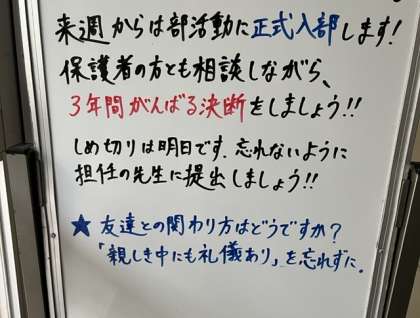 来週からは部活動に正式入部します!
保護者の方とも相談しながら、
3年間がんばる決断をしましょう!!
しめ切りは明日です。忘れないように
担任の先生に提出しましょう!!
★ 友達との関わり方はどうですか?
「親しき中にも礼儀あり」を忘れずに。